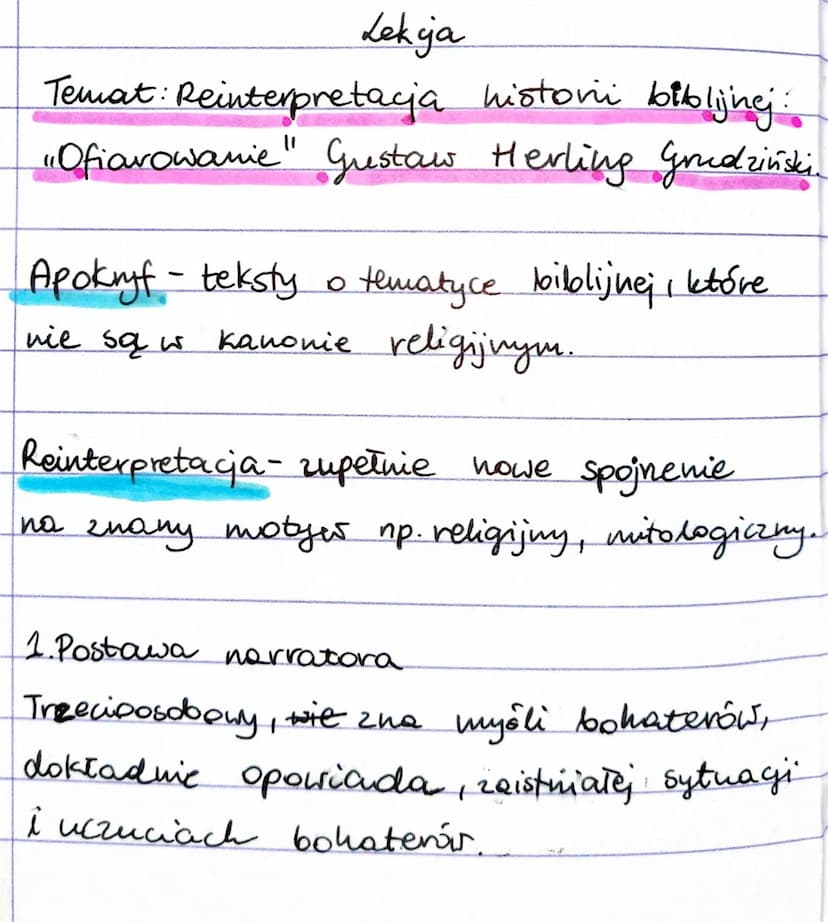 Lekcja
Temat: Reinterpretacja historii biblijnej:
"Ofiarowanie" Gustaw Herling Grudziński.
Apokryf - teksty o tematyce biblijnej, które
nie są w kanonie religijnym.
Reinterpretacja - zupełnie nowe spojrzenie
na znany motyw np. religijny, mitologiczny.
1. Postawa narratora
Trzecioosobowy, wie zna myśli bohaterów,
dokładnie opowiada, zaistniałej sytuacji
i uczuciach bohaterów.